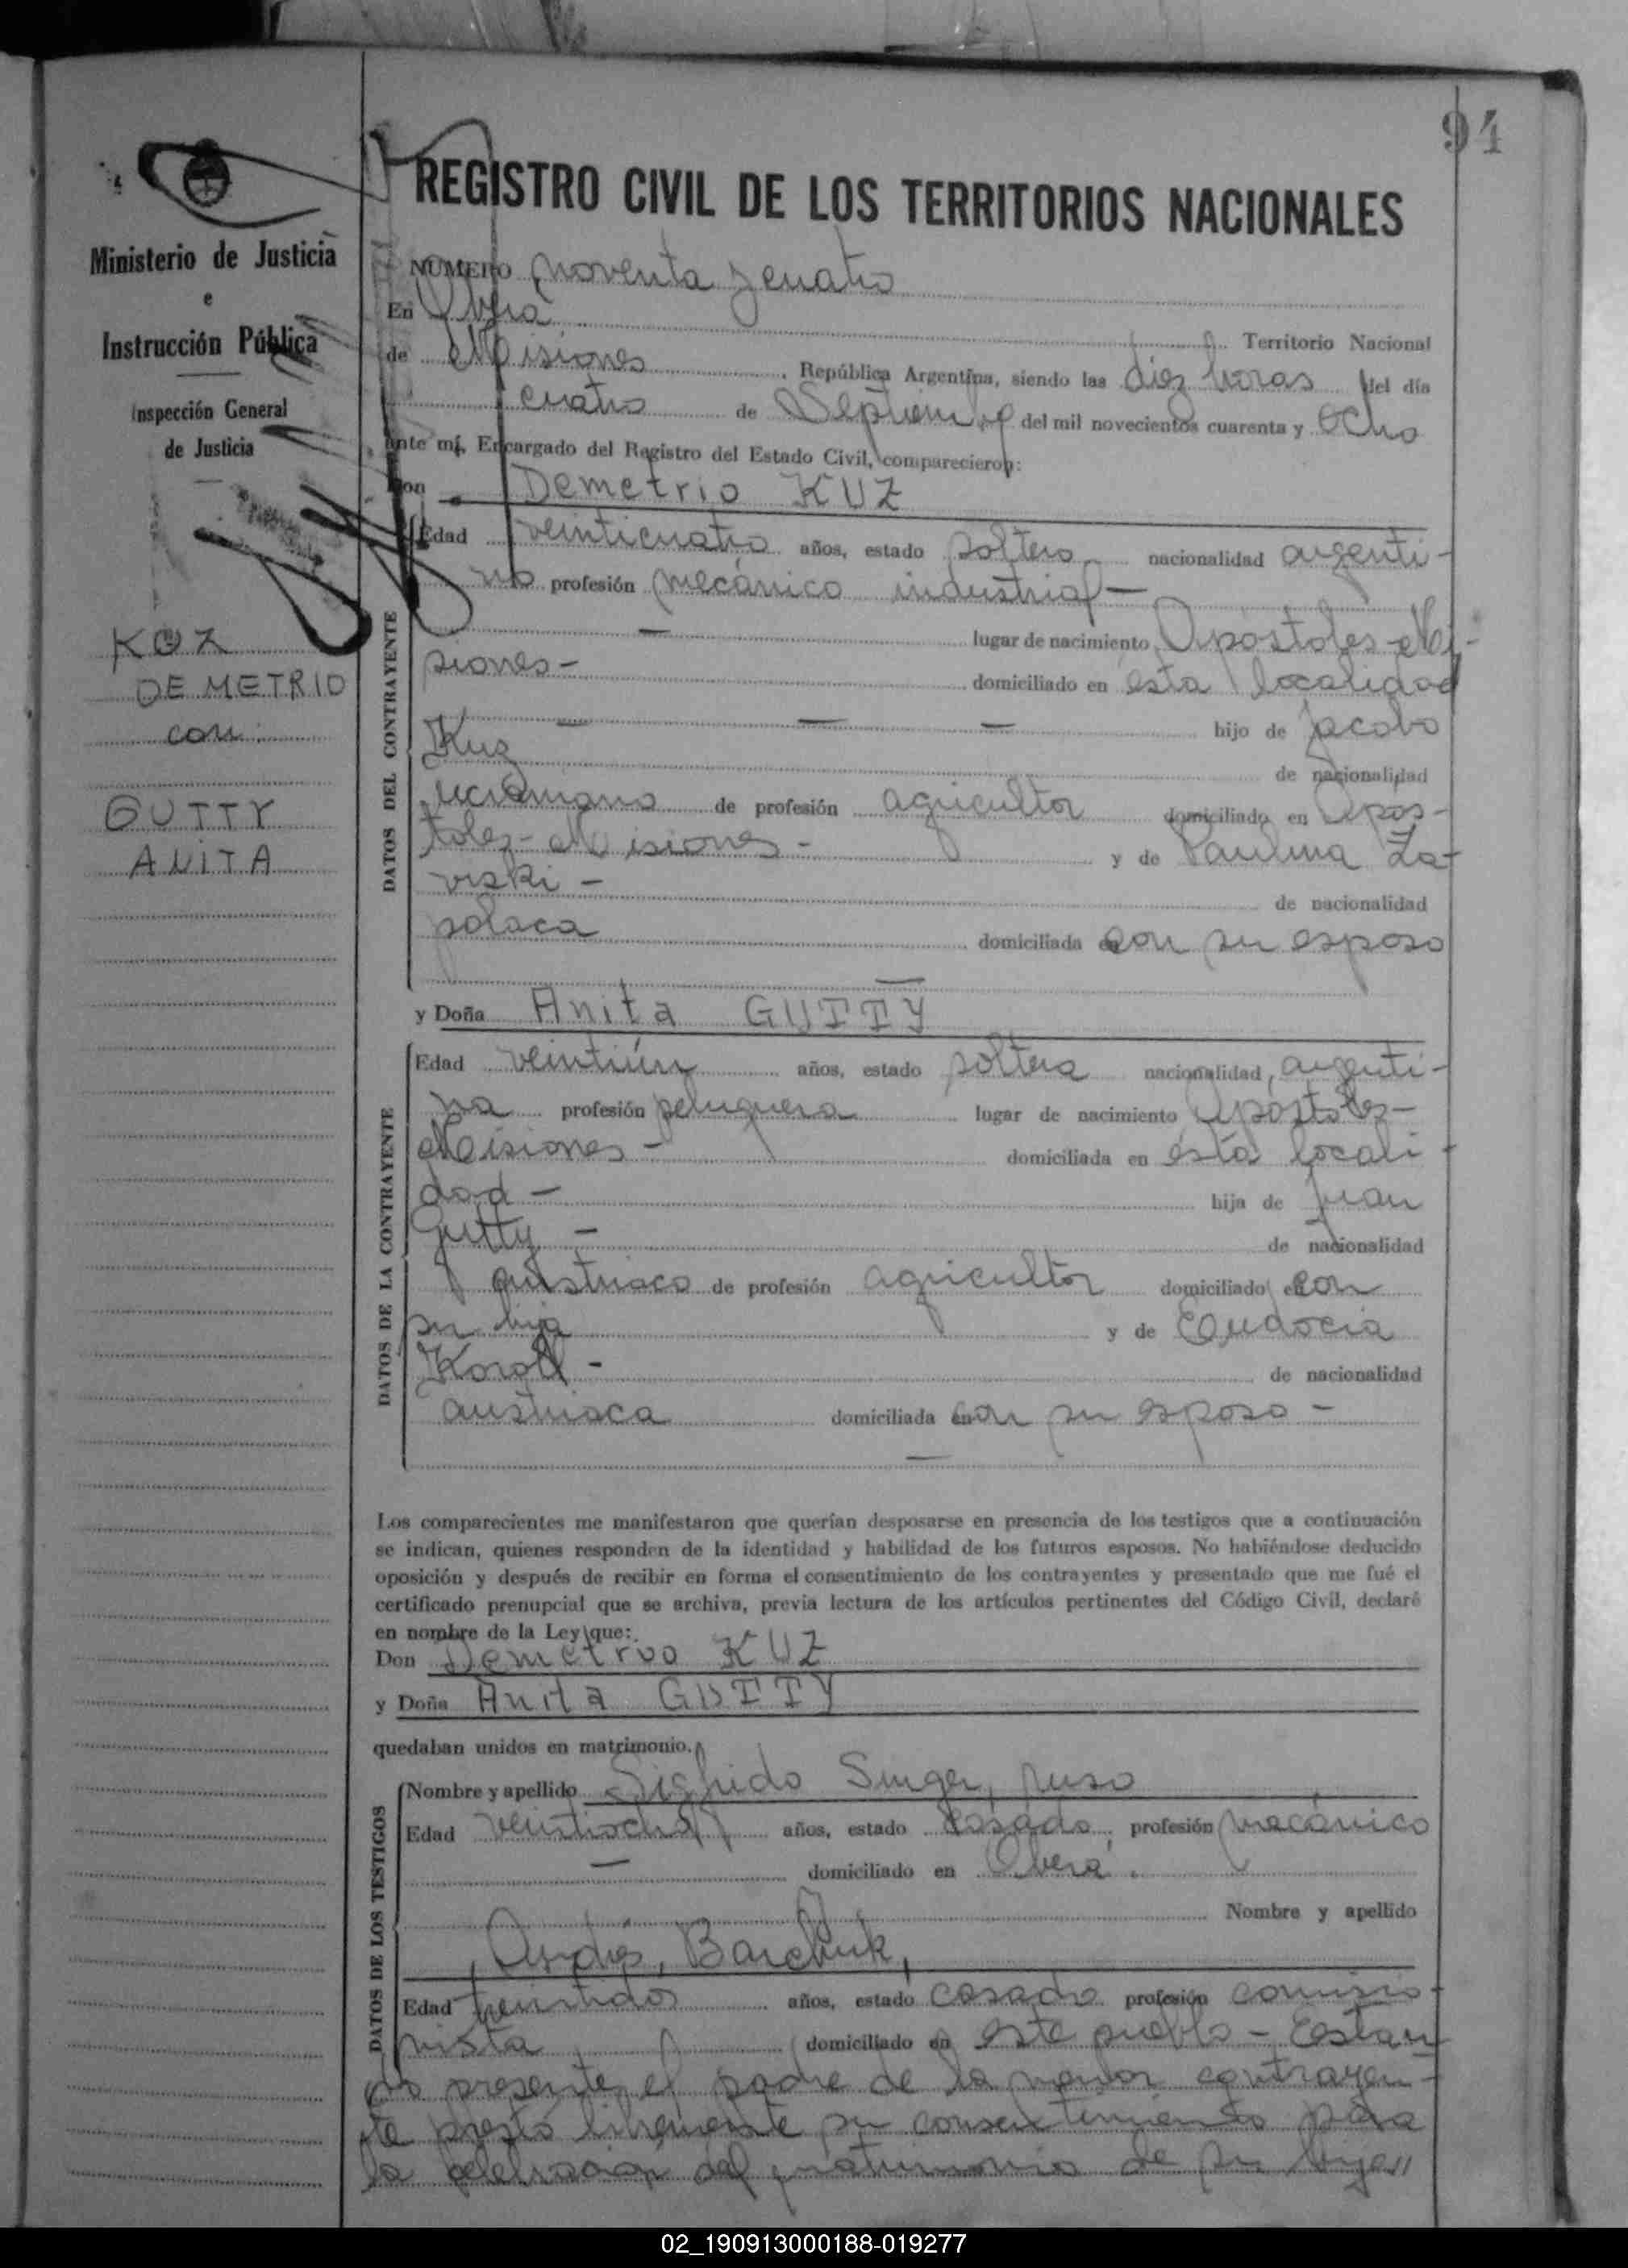 94
Ministerio de Justicia
e
Instrucción Pública
Inspección General
de Justicia
KUZ
DEMETRIO
con:
GUTTY
ANITA
REGISTRO CIVIL DE LOS TERRITORIOS NACIONALES
NÚMERO noventa y cuatro
En Oberá Territorio Nacional
de Misiones, República Argentina, siendo las diez horas del día
cuatro de Septiembre del mil novecientos cuarenta y Ocho
Ante mí, Encargado del Registro del Estado Civil, comparecieron:
Don Demetrio KUZ
DATOS DEL CONTRAYENTE
Edad veinticuatro años, estado soltero nacionalidad argenti-
no profesión mecánico industrial —
— lugar de nacimiento Apóstoles - Mi-
siones - domiciliado en ésta localidad
— — — hijo de Jacobo
Kuz de nacionalidad
ucraniano de profesión agricultor domiciliado en Após-
toles - Misiones - y de Paulina Za-
viski - de nacionalidad
polaca domiciliada en con su esposo
—
y Doña Anita GUTTY
DATOS DE LA CONTRAYENTE
Edad veintiún años, estado soltera nacionalidad argenti-
na profesión peluquera lugar de nacimiento Apóstoles -
Misiones - domiciliada en ésta locali-
dad - hija de Juan
Gutty - de nacionalidad
austriaco de profesión agricultor domiciliado en con
su hija y de Eudocia
Koroll - de nacionalidad
austriaca domiciliada en con su esposo -
—
Los comparecientes me manifestaron que querían desposarse en presencia de los testigos que a continuación
se indican, quienes responden de la identidad y habilidad de los futuros esposos. No habiéndose deducido
oposición y después de recibir en forma el consentimiento de los contrayentes y presentado que me fué el
certificado prenupcial que se archiva, previa lectura de los artículos pertinentes del Código Civil, declaré
en nombre de la Ley que:
Don Demetrio KUZ
y Doña Anita GUTTY
quedaban unidos en matrimonio.
DATOS DE LOS TESTIGOS
Nombre y apellido Sigfrido Singer, ruso
Edad veintiocho años, estado casado, profesión mecánico
— domiciliado en Oberá.
Nombre y apellido
Andrés, Barchuk,
Edad treintidos años, estado casado profesión comisio-
nista domiciliado en este pueblo - Estan-
do presente el padre de la menor contrayen-
te prestó libremente su consentimiento para
la celebración del matrimonio de su hija"
02_190913000188-019277